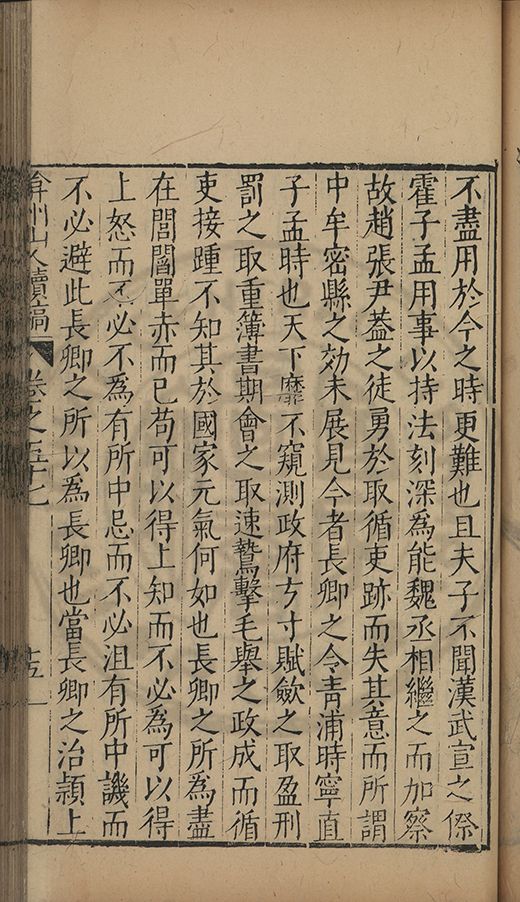 不盡用於今之時更難也且夫子不聞漢武宣之際
霍子孟用事以持法刻深爲能魏丞相繼之而加察
故趙張尹葢之徒勇於取循吏跡而失其意而所謂
中牟密縣之効未展見今者長卿之令青浦時寧直
子孟時也天下靡不窺測政府方寸賦歛之取盈刑
罰之取重簿書期會之取速鷙擊毛舉之政成而循
吏接踵不知其於國家元氣何如也長卿之所為盡
在閭閻單赤而已苟可以得上知而不必為可以得
上怒而不必不為有所中忌而不必沮有所中譏而
不必避此長卿之所以為長卿也當長卿之治潁上
弇州山人續稿 卷之五十七 十五